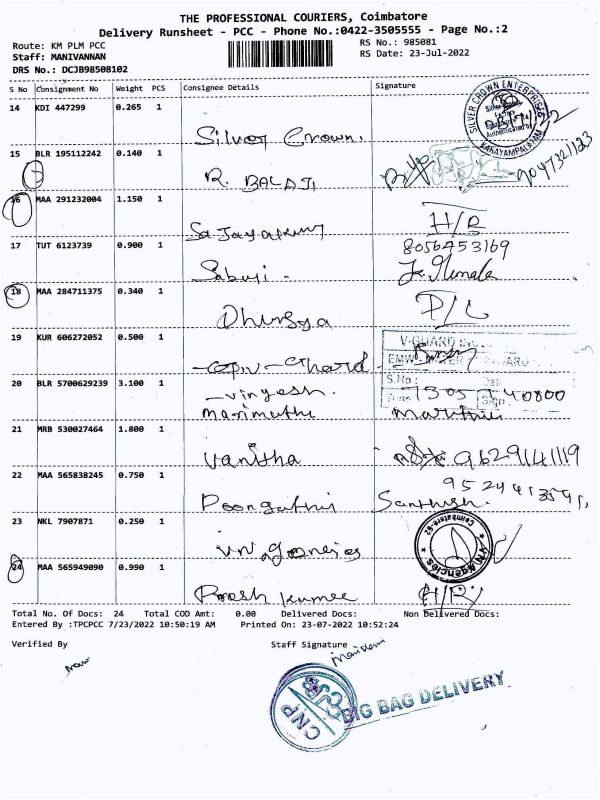 THE PROFESSIONAL COURIERS, Coimbatore
Delivery Runsheet - PCC - Phone No.:0422-3505555 - Page No.:2
Route: KM PLM PCC
RS No.: 985081
Staff: MANIVANNAN
RS Date: 23-Jul-2022
DRS No.: DCJB98508102
S No Consignment No Weight PCS Consignee Details Signature
14 KDI 447299 0.265 1
Silver Crown.
SILVER CROWN ENTERPRISES
15 BLR 195112242 0.140 1
R. BALAJI
9047321123
16 MAA 291232004 1.150 1
H/R
17 TUT 6123739 0.900 1
8056453169
18 MAA 284711375 0.340 1
19 KUR 606272052 0.500 1
V-GUARD
20 BLR 5700629239 3.100 1
Marimuthu
21 MRB 530027464 1.800 1
Vanitha 9629141119
22 MAA 565838245 0.750 1
Santhosh.
23 NKL 7907871 0.250 1
VN Agencies
Coimbatore-62
24 MAA 565949090 0.990 1
Total No. Of Docs: 24 Total COD Amt: 0.00 Delivered Docs: Non Delivered Docs:
Entered By :TPCPCC 7/23/2022 10:50:19 AM Printed On: 23-07-2022 10:52:24
Verified By Staff Signature
CNP
BIG BAG DELIVERY